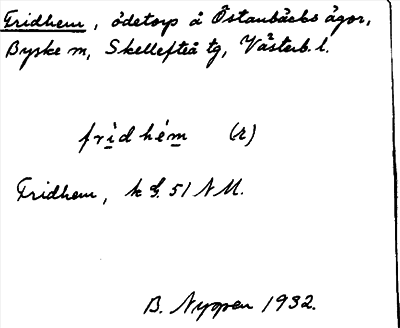 Fridhem, ödetorp å Östanbäcks ägor,
Byske sn, Skellefteå tg, Västerb. l.
fridhém (r)
Fridhem, k bl. 51 NM.
B. Nygren 1932.